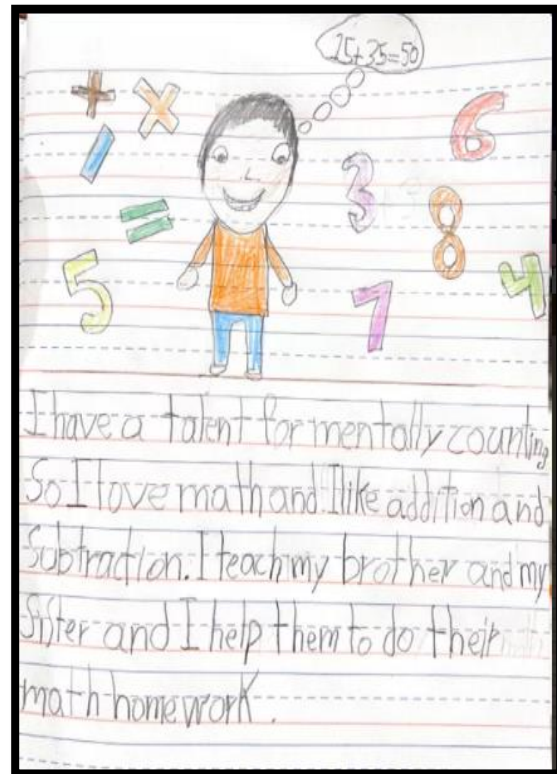 15+35=50
+ x 6
/ 3
= 8
5 7 4
I have a talent for mentally counting
So I love math and I like addition and
Subtraction. I teach my brother and my
Sister and I help them to do their
math homework.